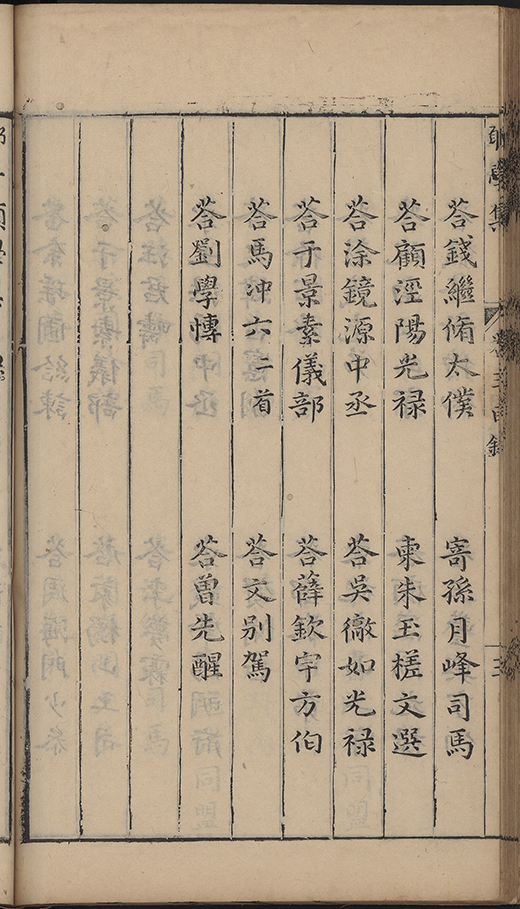 答錢繼脩太僕
寄孫月峰司馬
答顧涇陽光禄
柬朱玉槎文選
答涂鏡源中丞
答吳徼如光禄
答于景素儀部
答薛欽宇方伯
答馬冲六二首
答文别駕
答劉學慱
答曾先醒
學集
三